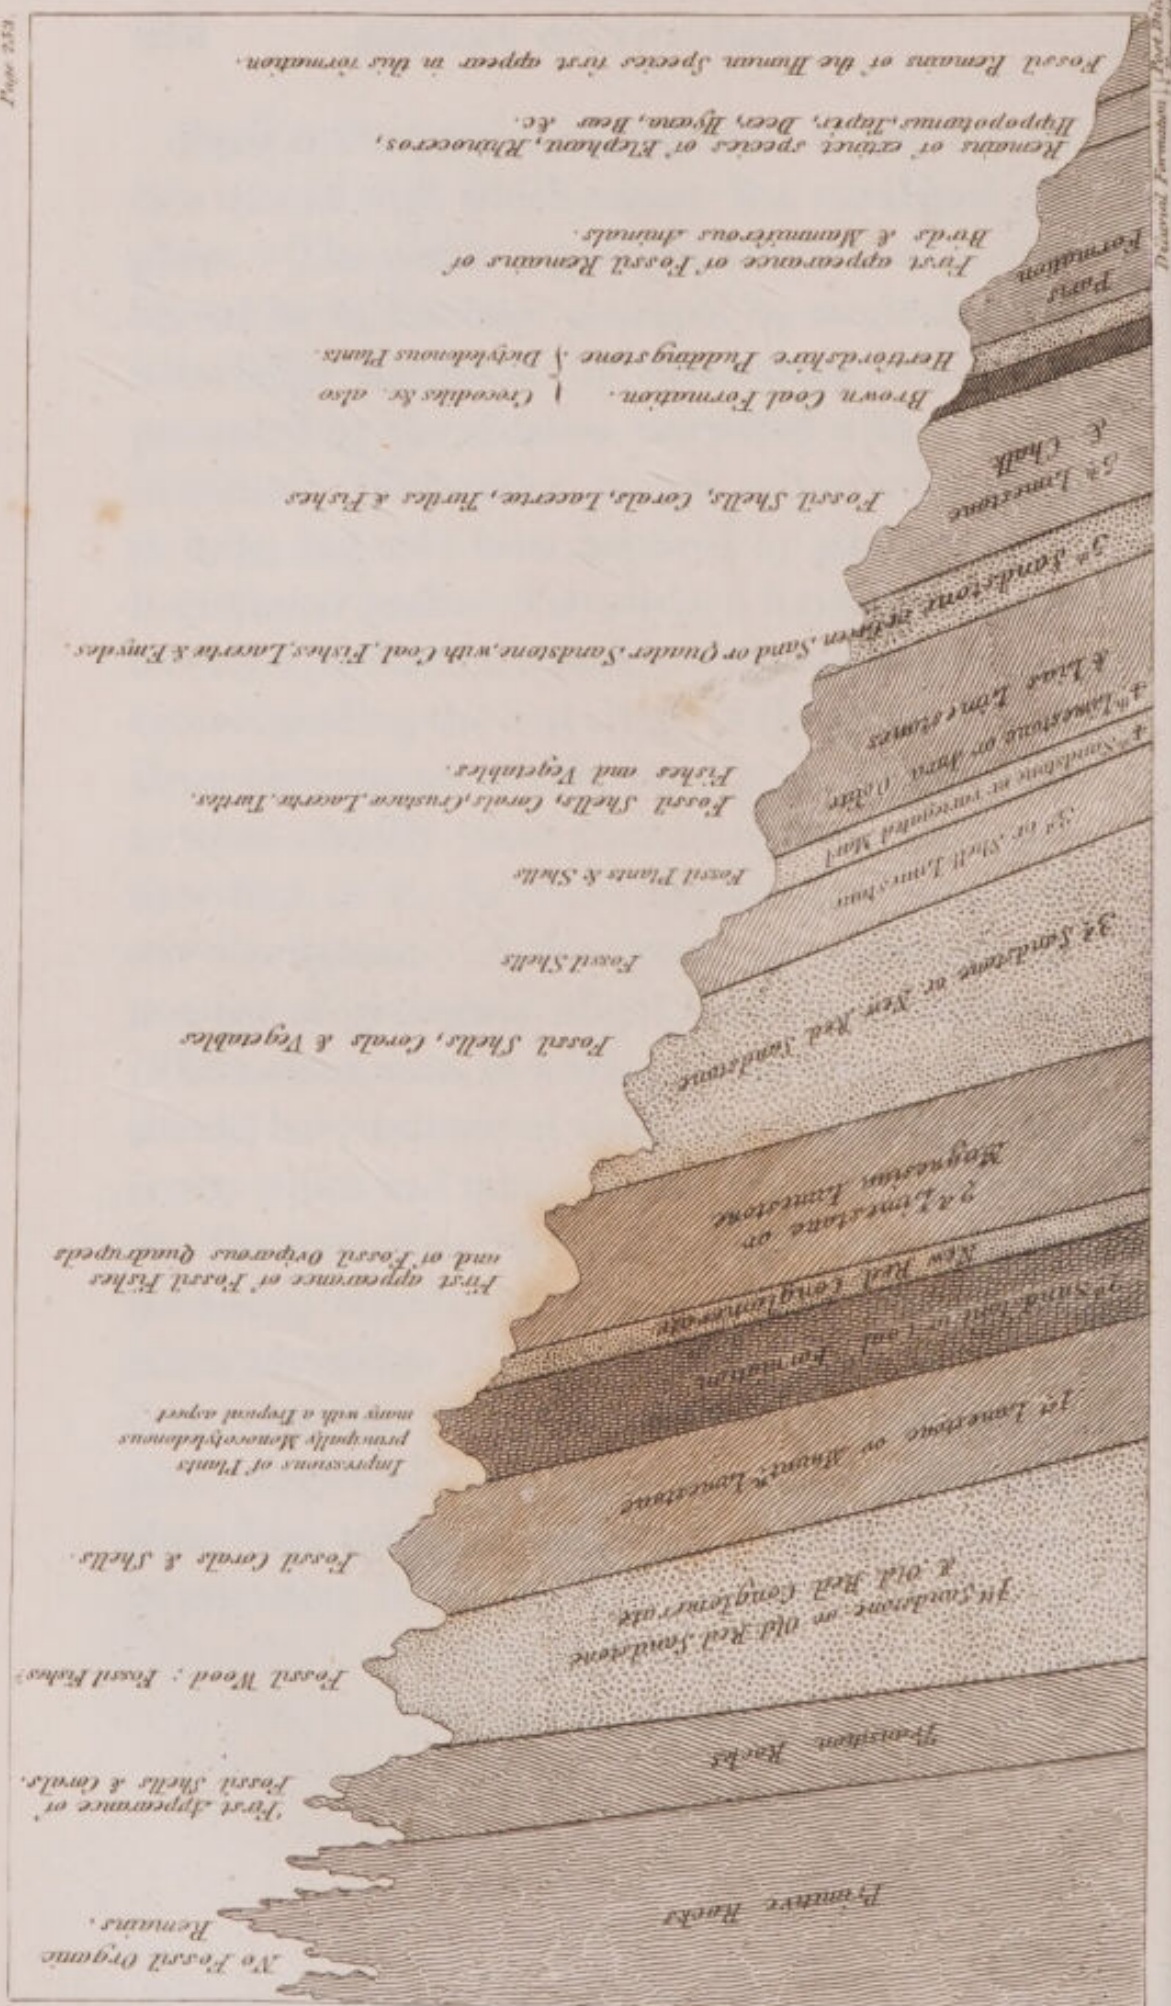 No Fossil Organic
Remains.
Primitive Rocks
First Appearance of
Fossil Shells & Corals.
Transition Rocks
Fossil Wood; Fossil Fishes?
1st Sandstone or Old Red Sandstone
& Old Red Conglomerate.
Fossil Corals & Shells.
1st Limestone or Mountn Limestone
Impressions of Plants
principally Monocotyledonous
many with a Tropical aspect.
2d Sandstone or Coal Formation
New Red Conglomerate
First appearance of Fossil Fishes
and of Fossil Oviparous Quadrupeds
2d Limestone or
Magnesian Limestone
Fossil Shells, Corals & Vegetables
3d Sandstone or New Red Sandstone
Fossil Shells
3d or Shell Limestone
Fossil Plants & Shells
4th Sandstone or variegated Marl
Fossil Shells, Corals, Crustacæ, Lacertæ, Turtles,
Fishes and Vegetables.
4th Limestone or Jura Oolite
& Lias Limestones
5th Sandstone or Green Sand or Quader Sandstone, with Coal, Fishes, Lacertæ & Emydes.
Fossil Shells, Corals, Lacertæ, Turtles & Fishes
5th Limestone
& Chalk
Brown Coal Formation. } Crocodiles &c. also
Hertfordshire Puddingstone } Dictyledonous Plants.
Paris
Formation
First appearance of Fossil Remains of
Birds & Mammiferous Animals.
Remains of extinct species of Elephant, Rhinoceros,
Hippopotamus, Tapir, Deer, Hyæna, Bear &c.
Fossil Remains of the Human Species first appear in this formation.
Diluvial Formation
Post
Page 253.